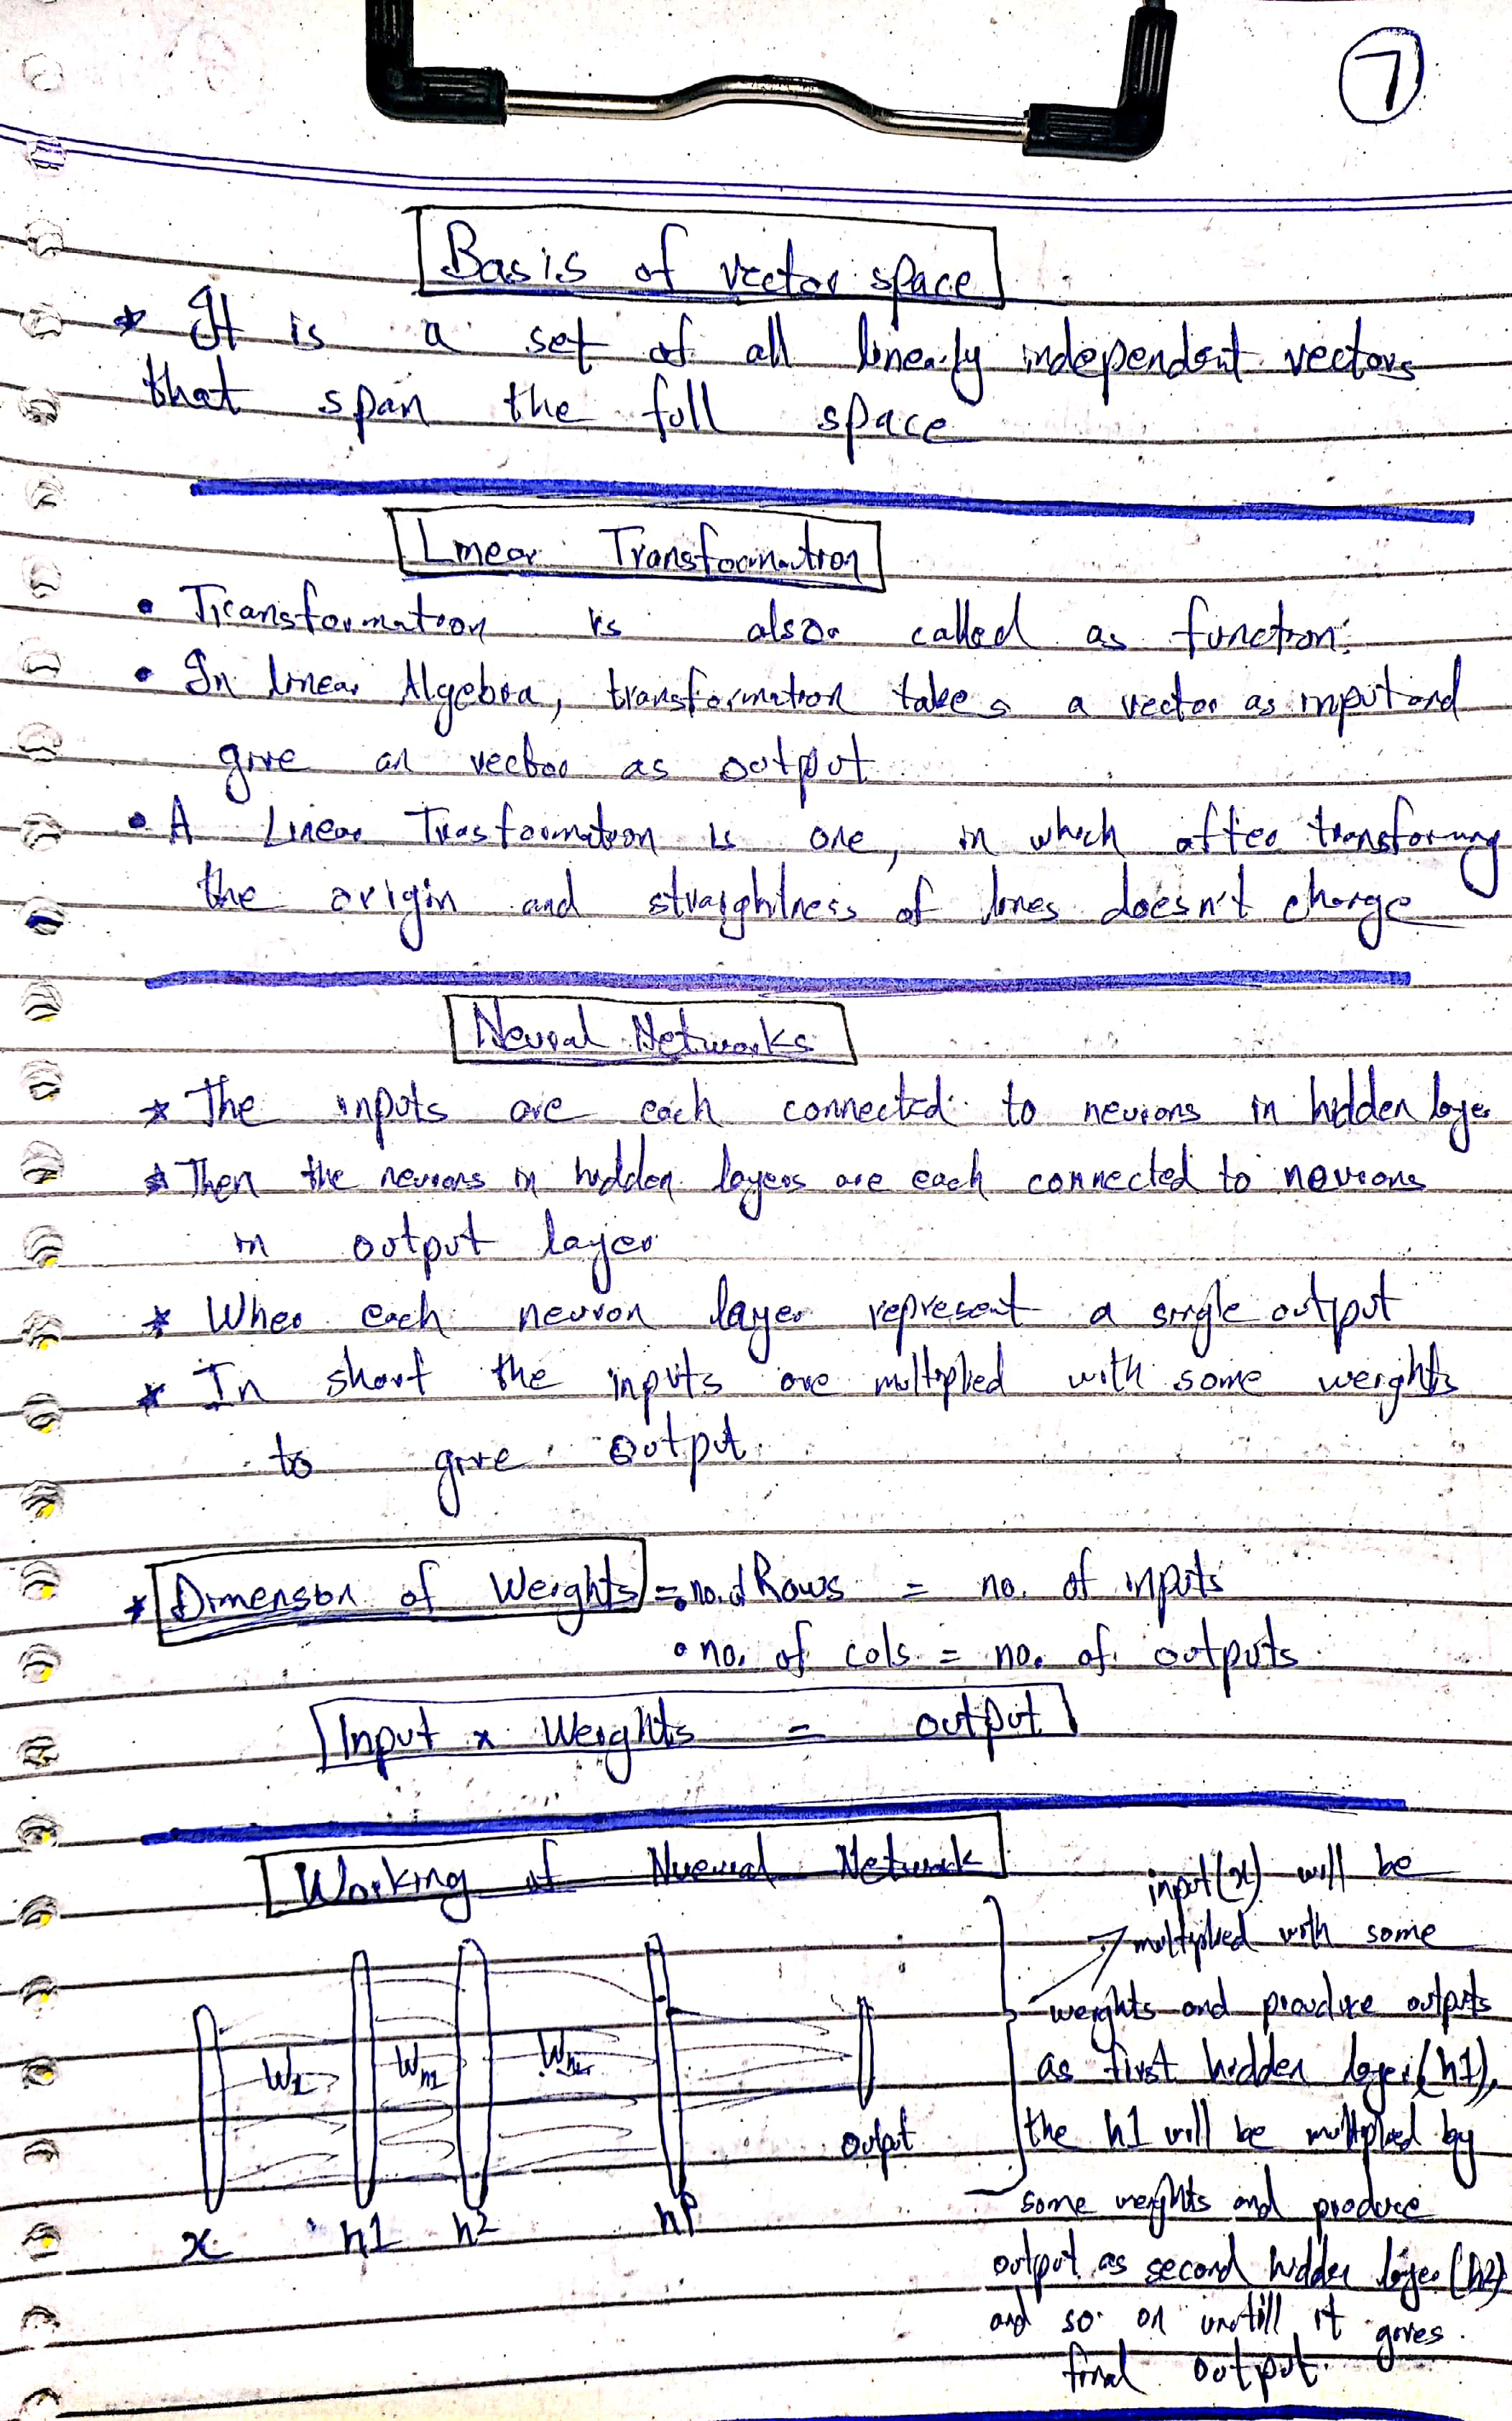 7
Basis of vector space
* It is a set of all linearly independent vectors
that span the full space
Linear Transformation
• Transformation is also called as function.
• In linear Algebra, transformation takes a vector as input and
give an vector as output
• A Linear Trasformation is one, in which after transforming
the origin and straightness of lines doesn't change
Neural Networks
* The inputs are each connected to neurons in hidden layer
* Then the neurons in hidden layers are each connected to neurons
in output layer
* Wher each neuron layer represent a single output
* In short the inputs are multiplied with some weights
to give output.
* Dimension of Weights = • no. of Rows = no. of inputs
• no. of cols = no. of outputs
Input x Weights = output
Working of Nueural Network
input(x) will be
multiplied with some
weights and proudure outputs
as first hidden layer (h1),
the h1 will be multiplied by
some weights and produce
output as second hidden layer (h2)
and so on untill it gives
final output.
W1 Wh1
output
x h1 h2